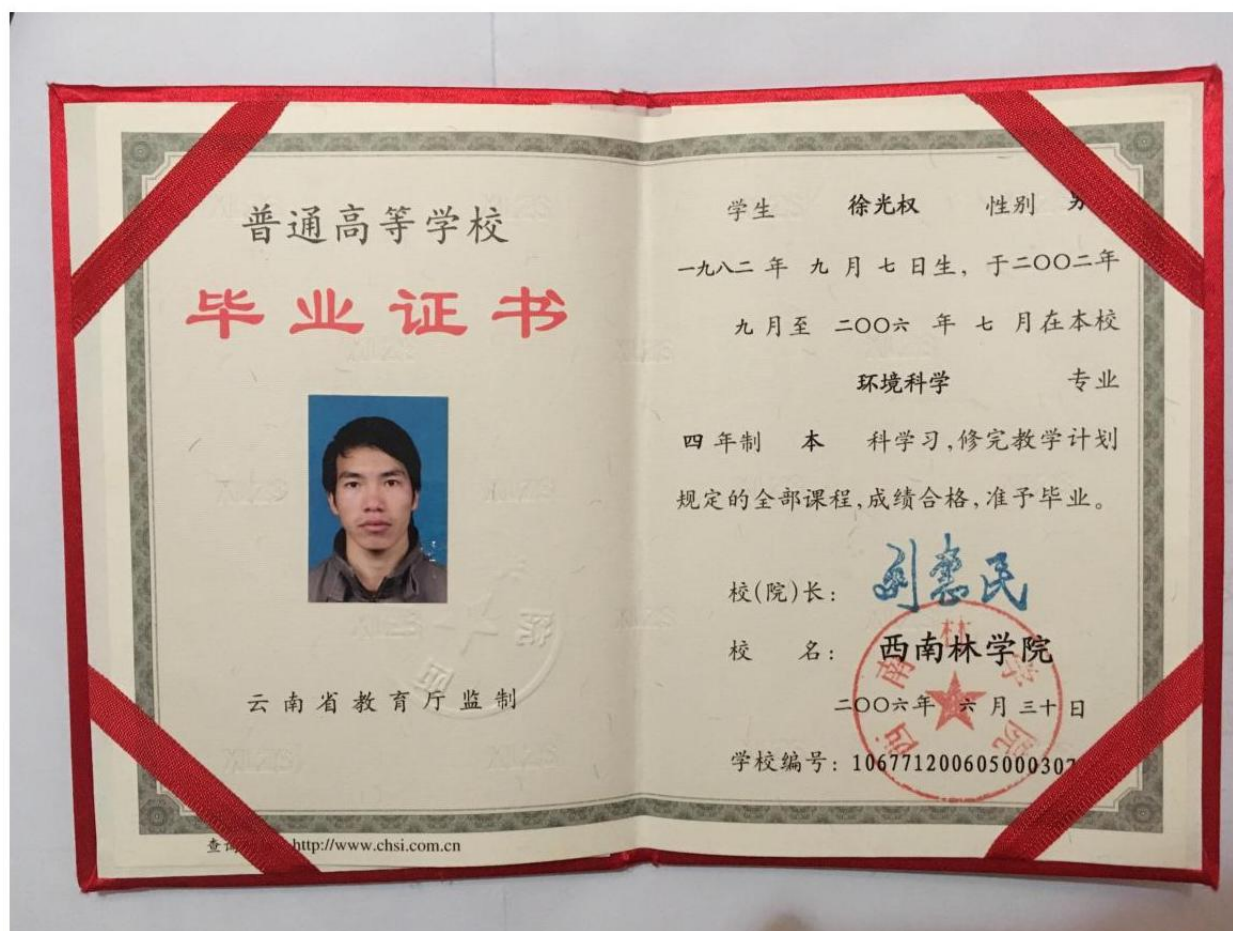 普通高等学校
毕业证书
云南省教育厅监制
http://www.chsi.com.cn
学生 徐光权 性别
一九八二年 九月七日生，于二〇〇二年
九月至 二〇〇六 年 七 月在本校
环境科学 专业
四年制 本 科学习，修完教学计划
规定的全部课程，成绩合格，准予毕业。
校(院)长：
校 名：西南林学院
二〇〇六年 六月三十日
学校编号：10677120060500030
西南林学院